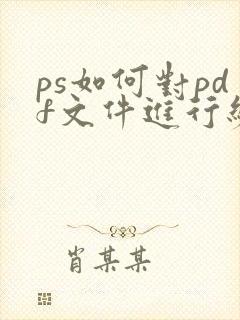 ps如何對pd
f文件進行
肖某某